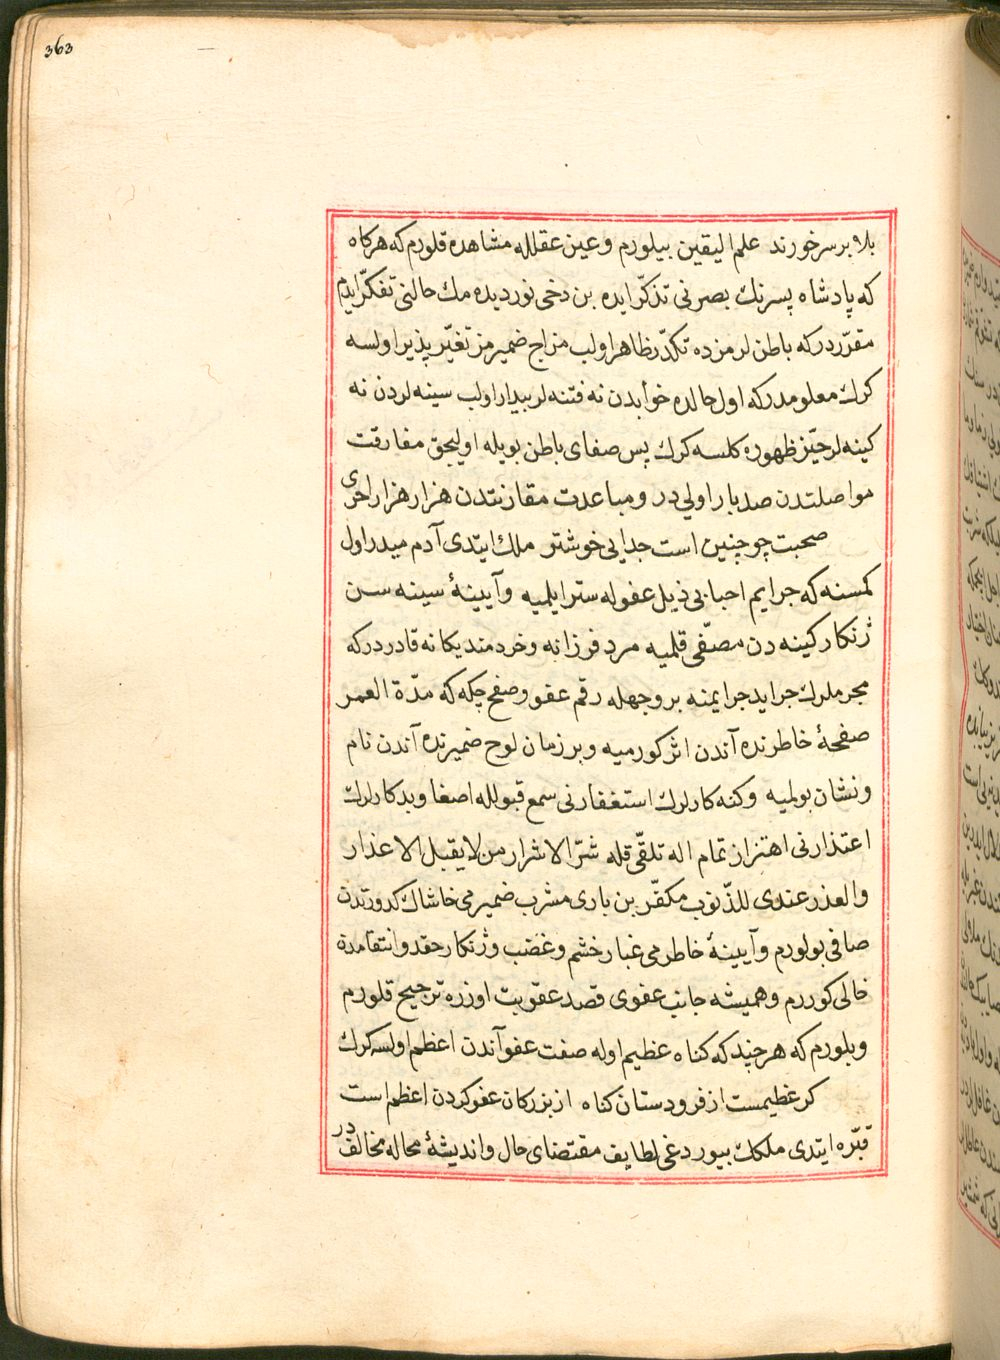 363
بلاو برسر خورند علم الیقین بیلورم و عین عقلله مشاهده قلورم که هرکاه
که پادشاه پسرنك بصرنی تذکّر ایده بن دخی نوردیده مك حالنی تفکّر ایدم
مقرّردرکه باطن لرمزده تکدّر ظاهر اولب مزاج ضمیرمز تغیّرپذیر اولسه
کرك معلومدرکه اول حالده خوابدن نه فتنه لر بیدار اولب سینه لردن نه
کینه لر حیّز ظهوره کلسه کرك پس صفای باطن بویله اولیجق مفارقت
مواصلتدن صدبار اولی در و مباعدت مقارنتدن هزار هزار احری
صحبت چو چنین است جدایی خوشتو ملك ایتدی آدم میدر اول
کمسنه که جرایم احبایی ذیل عفوله ستر ایلمیه و آیینهٔ سینه سن
ژنکار کینه دن مصفّی قلمیه مرد فرزانه و خردمند یکانه قادردرکه
مجرملرك جراید جرایمنه بر وجهله رقم عفو و صفح چکه که مدّة العمر
صفحهٔ خاطرنده آندن اثر کورمیه و بر زمان لوح ضمیرنده آندن نام
و نشان بولمیه و کنه کارلرك استغفارنی سمع قبولله اصغا و بدکارلرك
اعتذارنی اهتزاز تمام اله تلقّی قله شرّ الاشرار من لا یقبل الاعذار
والعذر عندی للذّنوب مکفّر بن باری مشرب ضمیرمی خاشاك کدورتدن
صافی بولورم و آیینهٔ خاطرمی غبار خشم و غضب و ژنکار حقد و انتقامدة
خالی کوررم و همیشه جانب عفوی قصد عقوبت اوزره ترجیح قلورم
و بلورم که هر چند که کناه عظیم اوله صفت عفو آندن اعظم اولسه کرك
کر عظیمست از فرودستان کناه از بزرکان عفو کردن اعظم است
قبّره ایتدی ملكك بیوردغی لطایف مقتضای حال و اندیشهٔ محاله مخالفدر